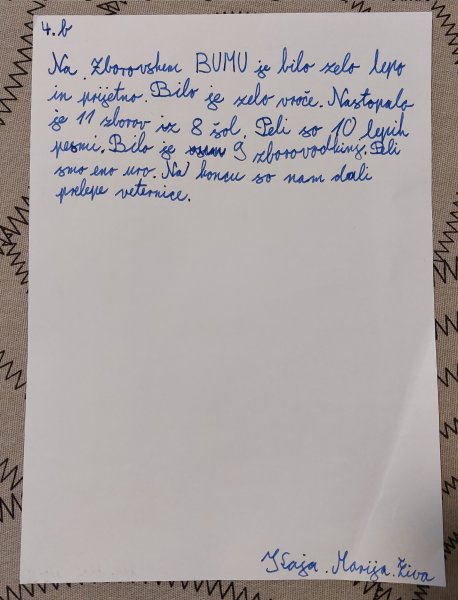 4. b
Na Zborovskem BUMU je bilo zelo lepo
in prijetno. Bilo je zelo vroče. Nastopalo
je 11 zborov iz 8 šol. Peli so 10 lepih
pesmi. Bilo je 9 zborovodkinj. Peli
smo eno uro. Na koncu so nam dali
prelepe veternice.
Kaja. Marija. Živa